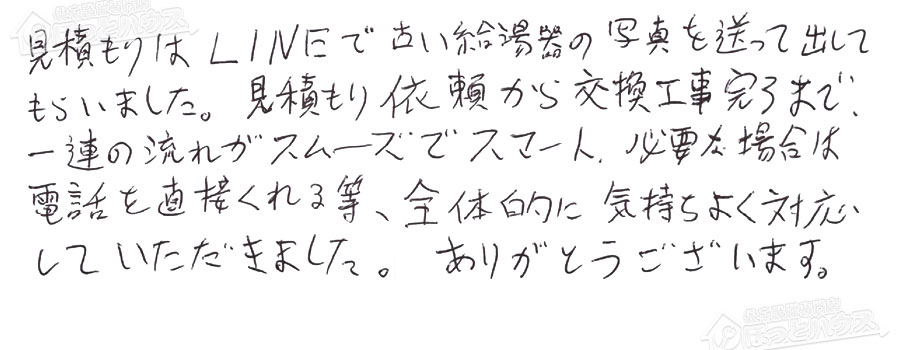 見積もりはLINEで古い給湯器の写真を送って出して
もらいました。見積もり依頼から交換工事完了まで、
一連の流れがスムーズでスマート、必要な場合は
電話を直接くれる等、全体的に気持ちよく対応
していただきました。ありがとうございます。
ほっとハウス